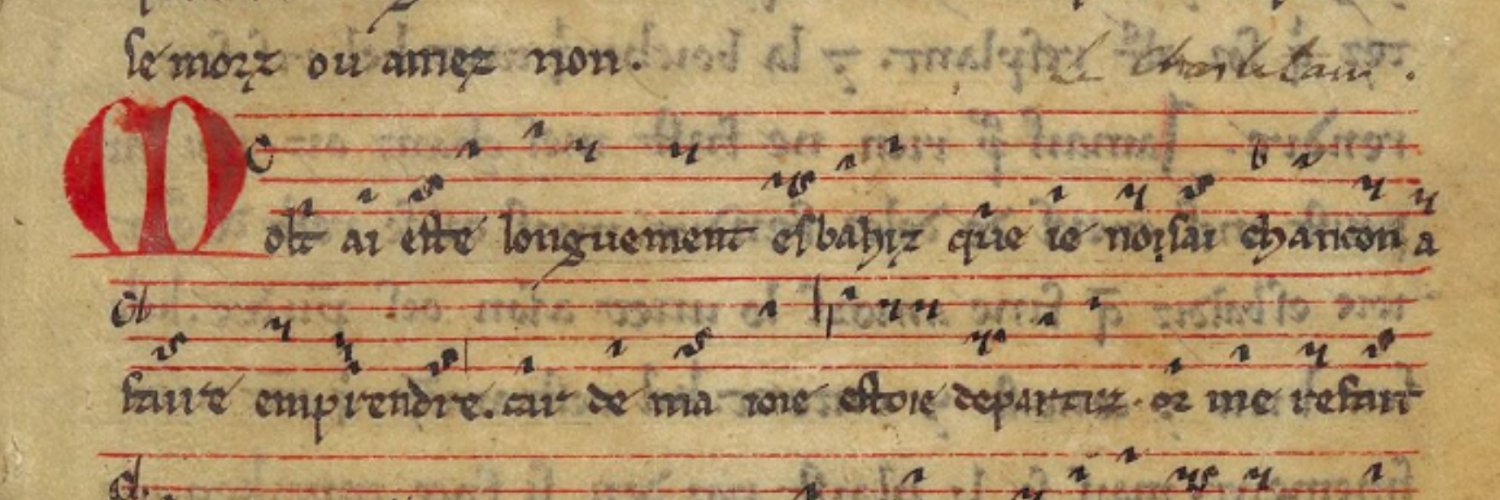 se morz ou amez non.
Molt ai este longuement esbahiz que ie noisai chancon a
faire emprendre. car de ma ioie estoie departiz. or me refait